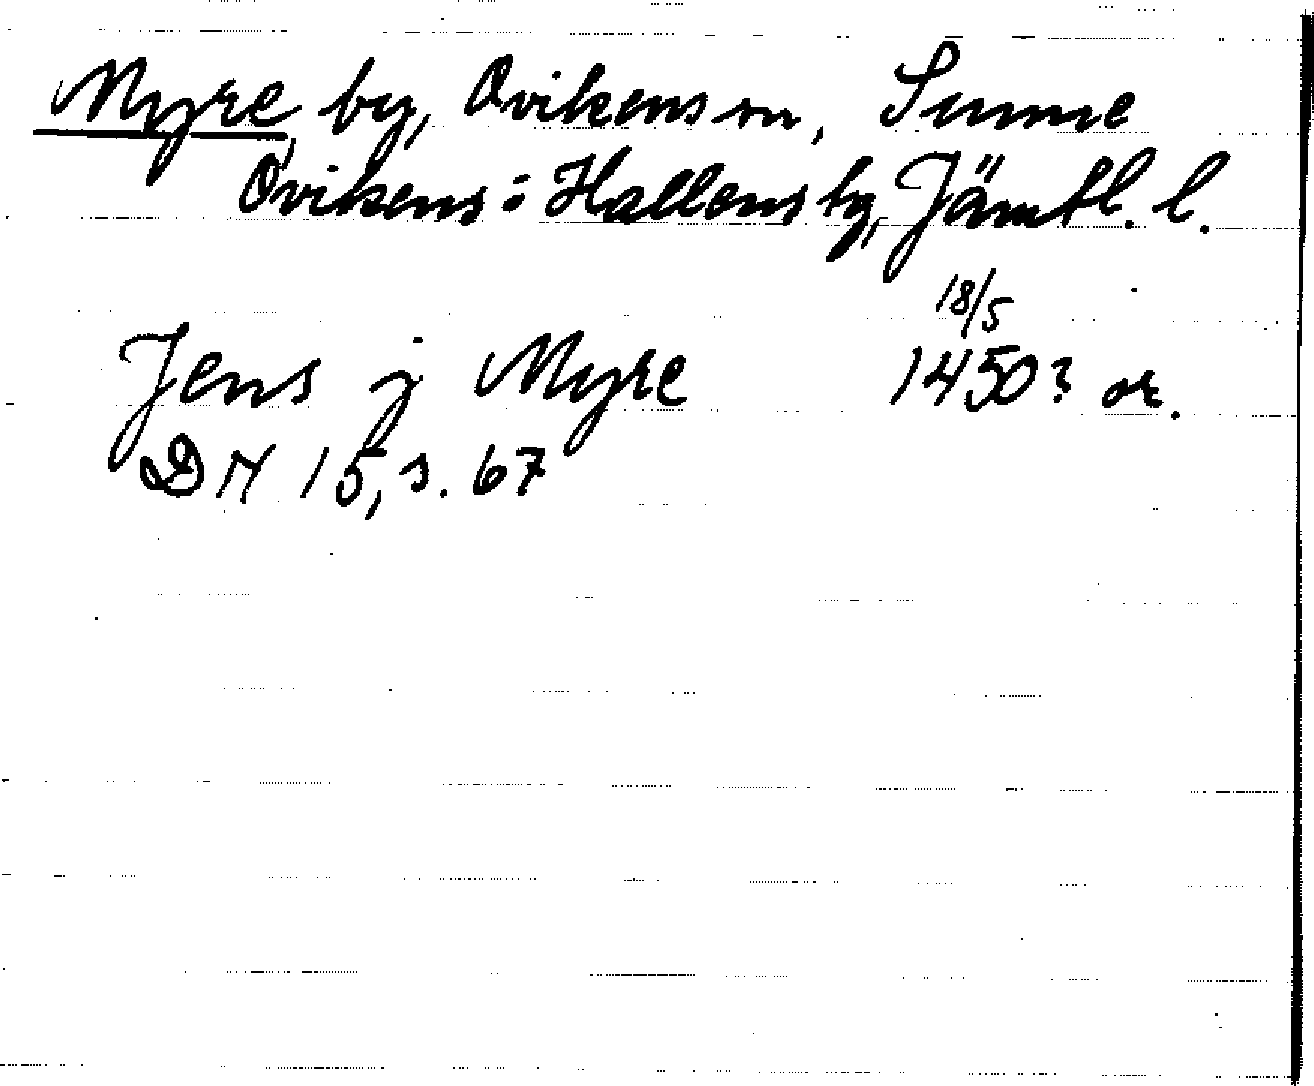 Myre by, Ovikens sn, Sunne
Ovikens o Hallens tg, Jämtl. l.
18/5
Jens j Myre 1450? or.
DN 15, s. 67